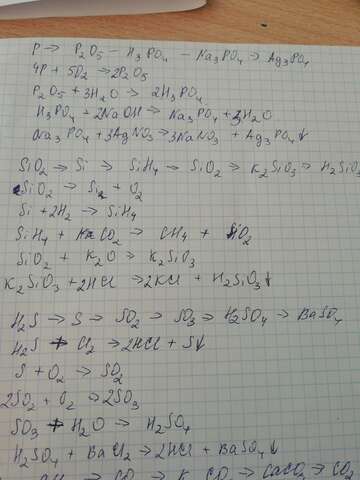 P → P2O5 — H3PO4 — Na3PO4 → Ag3PO4
4P + 5O2 → 2P2O5
P2O5 + 3H2O → 2H3PO4
H3PO4 + 2NaOH → Na3PO4 + 3H2O
Na3PO4 + 3AgNO3 → 3NaNO3 + Ag3PO4↓
SiO2 → Si → SiH4 → SiO2 → K2SiO3 → H2SiO3
SiO2 → Si + O2
Si + 2H2 → SiH4
SiH4 + CO2 → CH4 + SiO2
SiO2 + K2O → K2SiO3
K2SiO3 + 2HCl → 2KCl + H2SiO3↓
H2S → S → SO2 → SO3 → H2SO4 → BaSO4
H2S + Cl2 → 2HCl + S↓
S + O2 → SO2
2SO2 + O2 → 2SO3
SO3 + H2O → H2SO4
H2SO4 + BaCl2 → 2HCl + BaSO4↓
CaCO3 → CO2